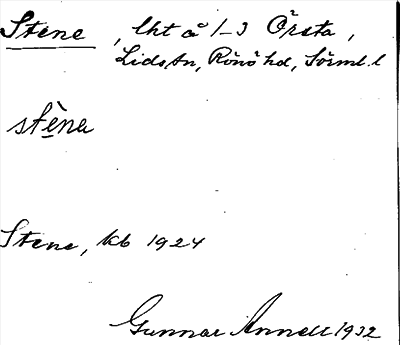 Stene, lht å 1-3 Örsta,
Lids sn, Rönö hd, Sörml. l
stèna
Stene, kb 1924
Gunnar Annell 1932